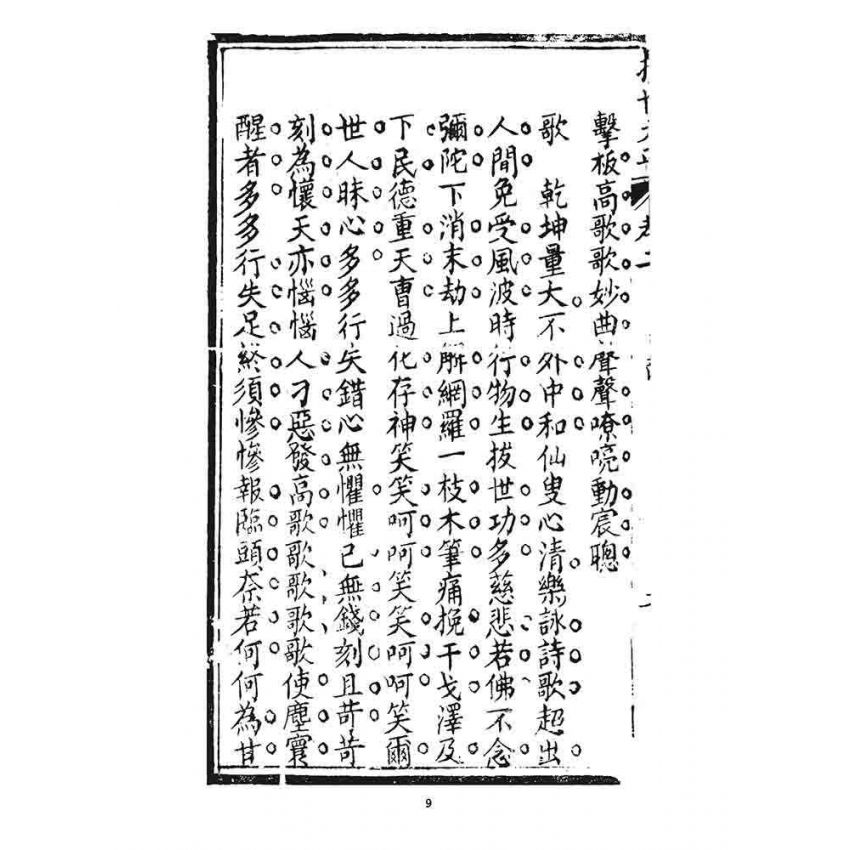 擊板高歌歌妙曲聲聲嘹喨動宸聰
歌　乾坤量大不外中和仙叟心清樂詠詩歌超出
人間免受風波時行物生拔世功多慈悲若佛不念
彌陀下消末劫上解網羅一枝木筆痛挽干戈澤及
下民德重天曹過化存神笑笑呵呵笑笑呵呵笑爾
世人昧心多多行矢錯心無懼懼己無錢刻且苛苛
刻為懷天亦惱惱人刁惡發高歌歌歌歌歌使塵寰
醒者多多行失足終須慘慘報臨頭奈若何何為甘
9